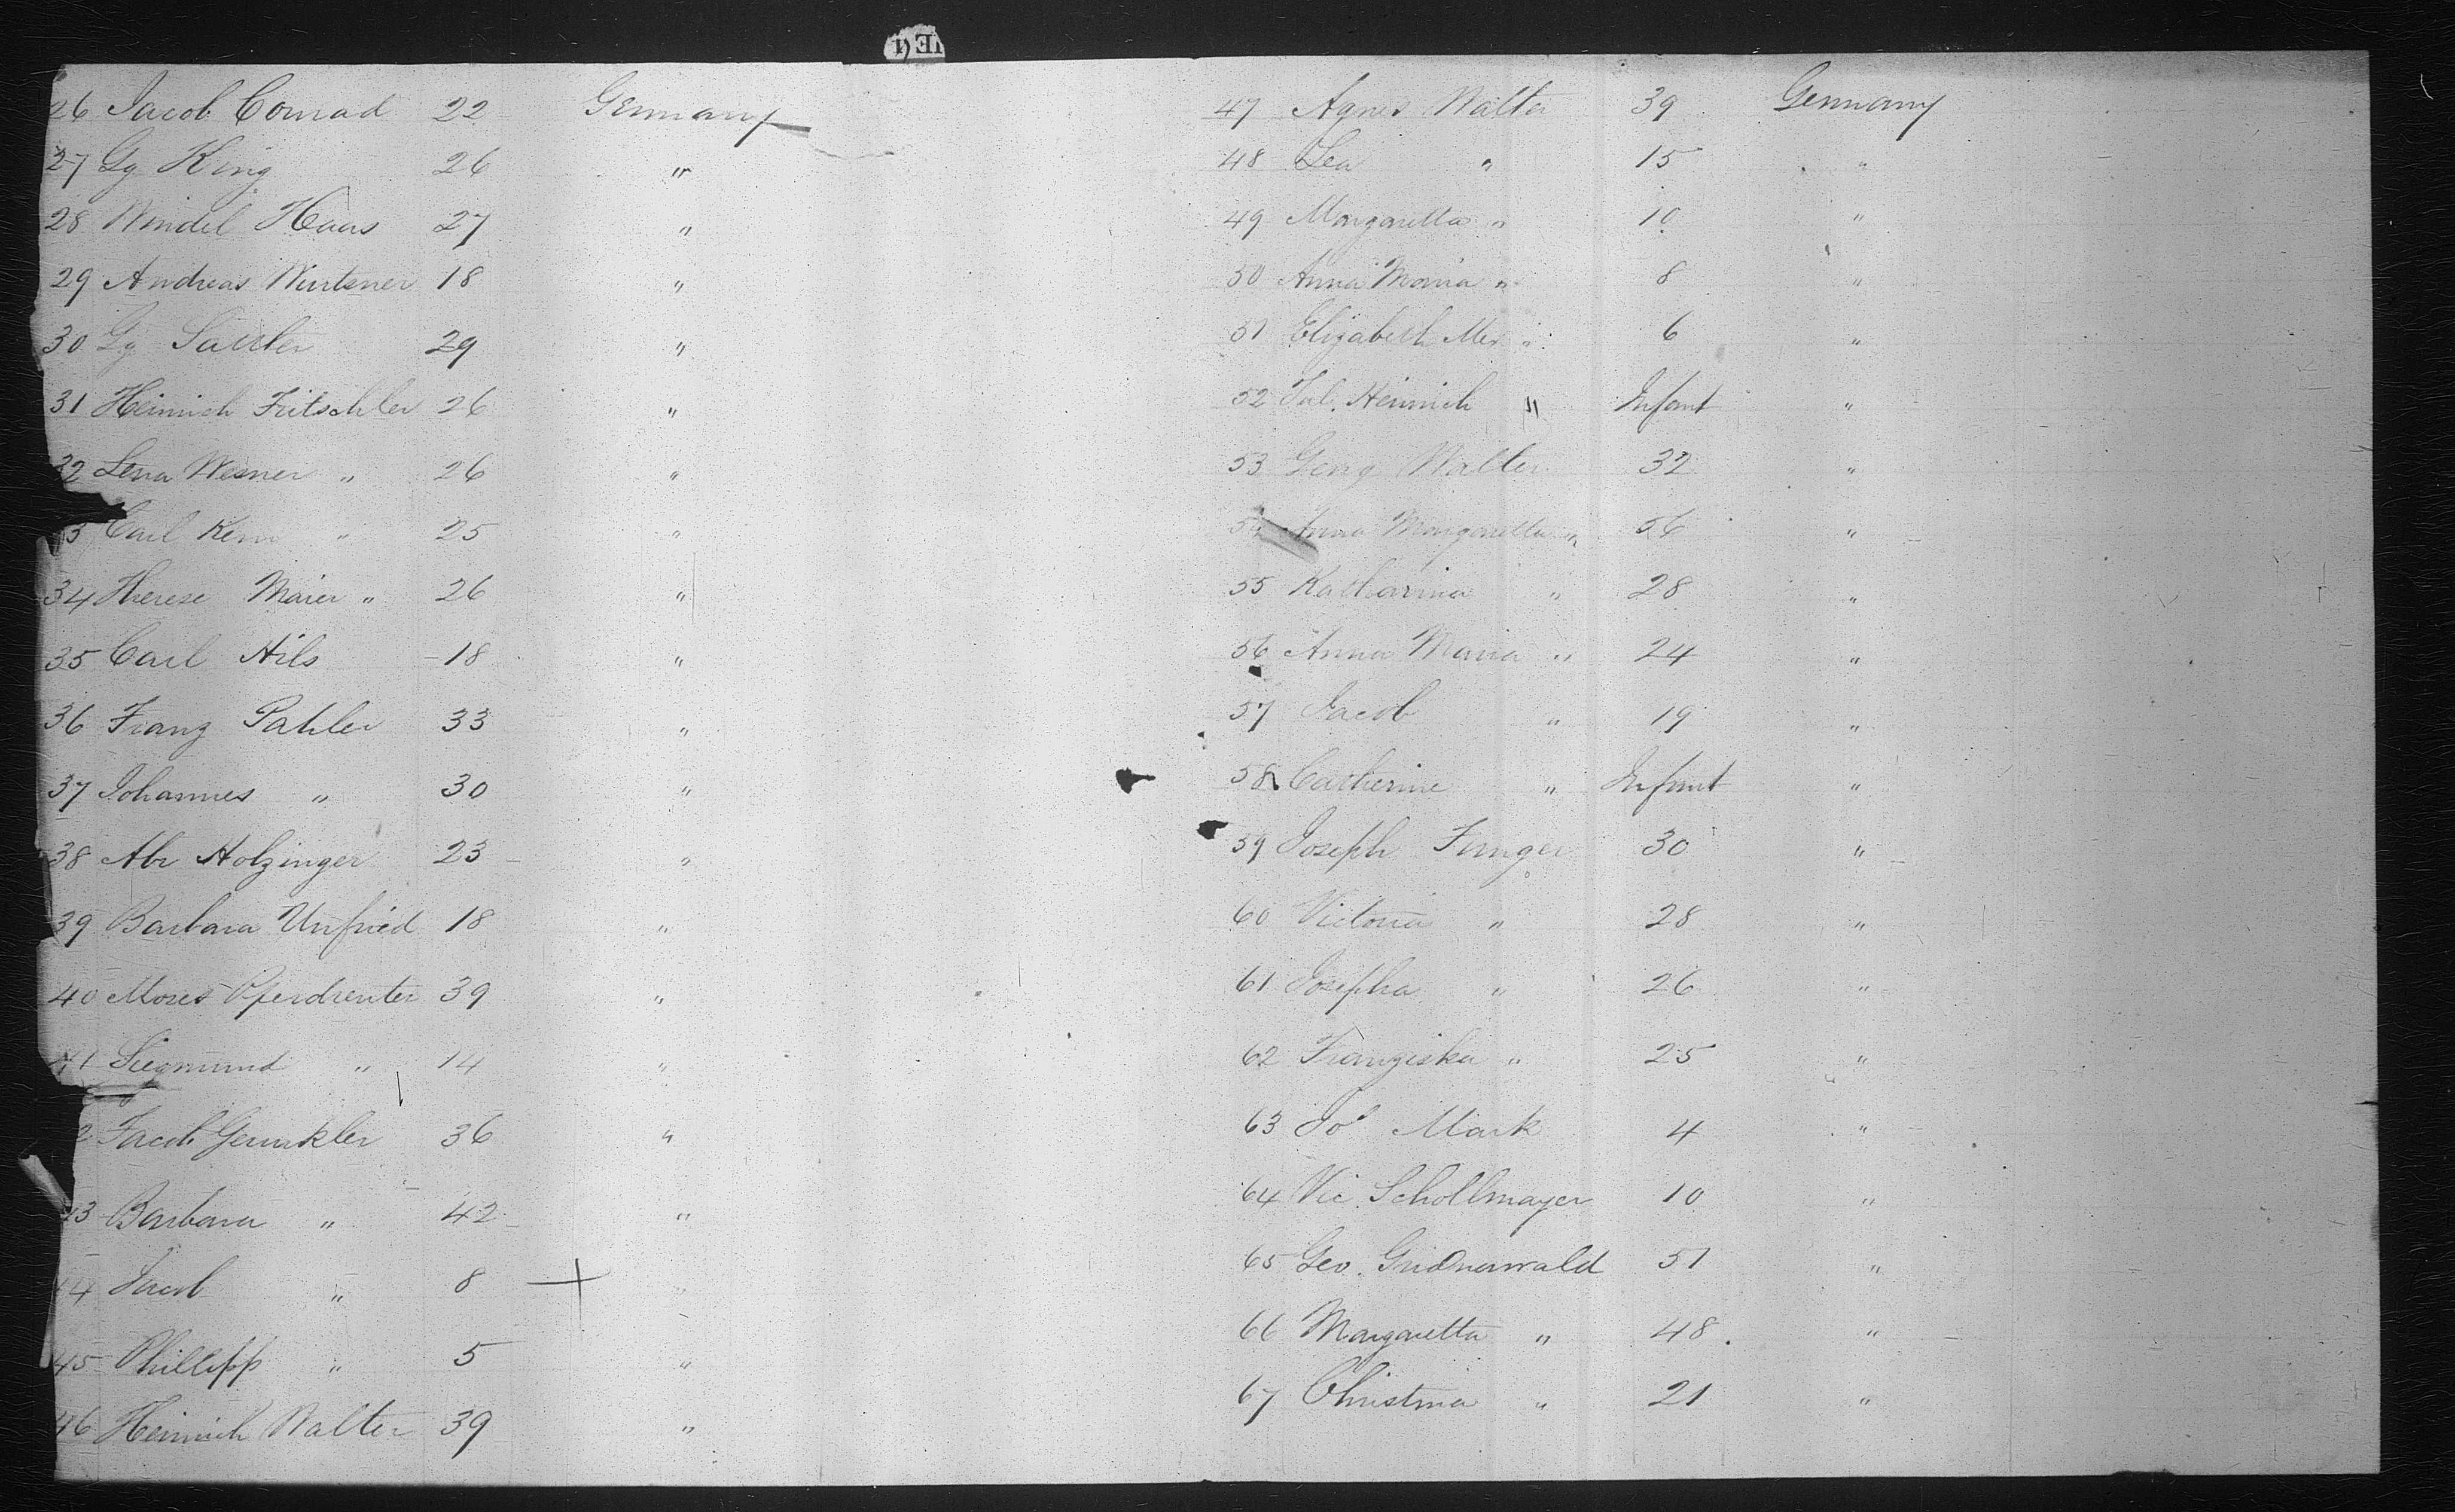 26 Jacob Conrad 22 Germany
27 Gg King 26 "
28 Windel Haas 27 "
29 Andreas Wurtsner 18 "
30 Gg Sattler 29 "
31 Heinrich Fritschler 26 "
32 Lena Werner " 26 "
33 Carl Kern " 25 "
34 Therese Maier " 26 "
35 Carl Hils 18 "
36 Franz Pahler 33 "
37 Johannes " 30 "
38 Abr Holzinger 23 "
39 Barbara Unfried 18 "
40 Moses Pferdrenter 39 "
41 Siegmund " 14 "
42 Jacob 36 "
43 Barbara " 42 "
44 Jacob " 8 "
45 Phillipp " 5 "
46 Heinrich Walter 39 "
47 Agnes Walter 39 Germany
48 Lea " 15 "
49 Margaretta " 10 "
50 Anna Maria " 8 "
51 Elizabeth Mer " 6 "
52 Jul. Heinrich " Infant "
53 Georg Walter 32 "
54 Anna Margaretta " 56 "
55 Katharina " 28 "
56 Anna Maria " 24 "
57 Jacob " 19 "
58 Catherine " Infant "
59 Joseph Finger 30 "
60 Victoria " 28 "
61 Josepha " 26 "
62 Franziska " 25 "
63 Jo Mark 4 "
64 Vic. Schollmayer 10 "
65 Geo. 51 "
66 Margaretta " 48 "
67 Christina " 21 "